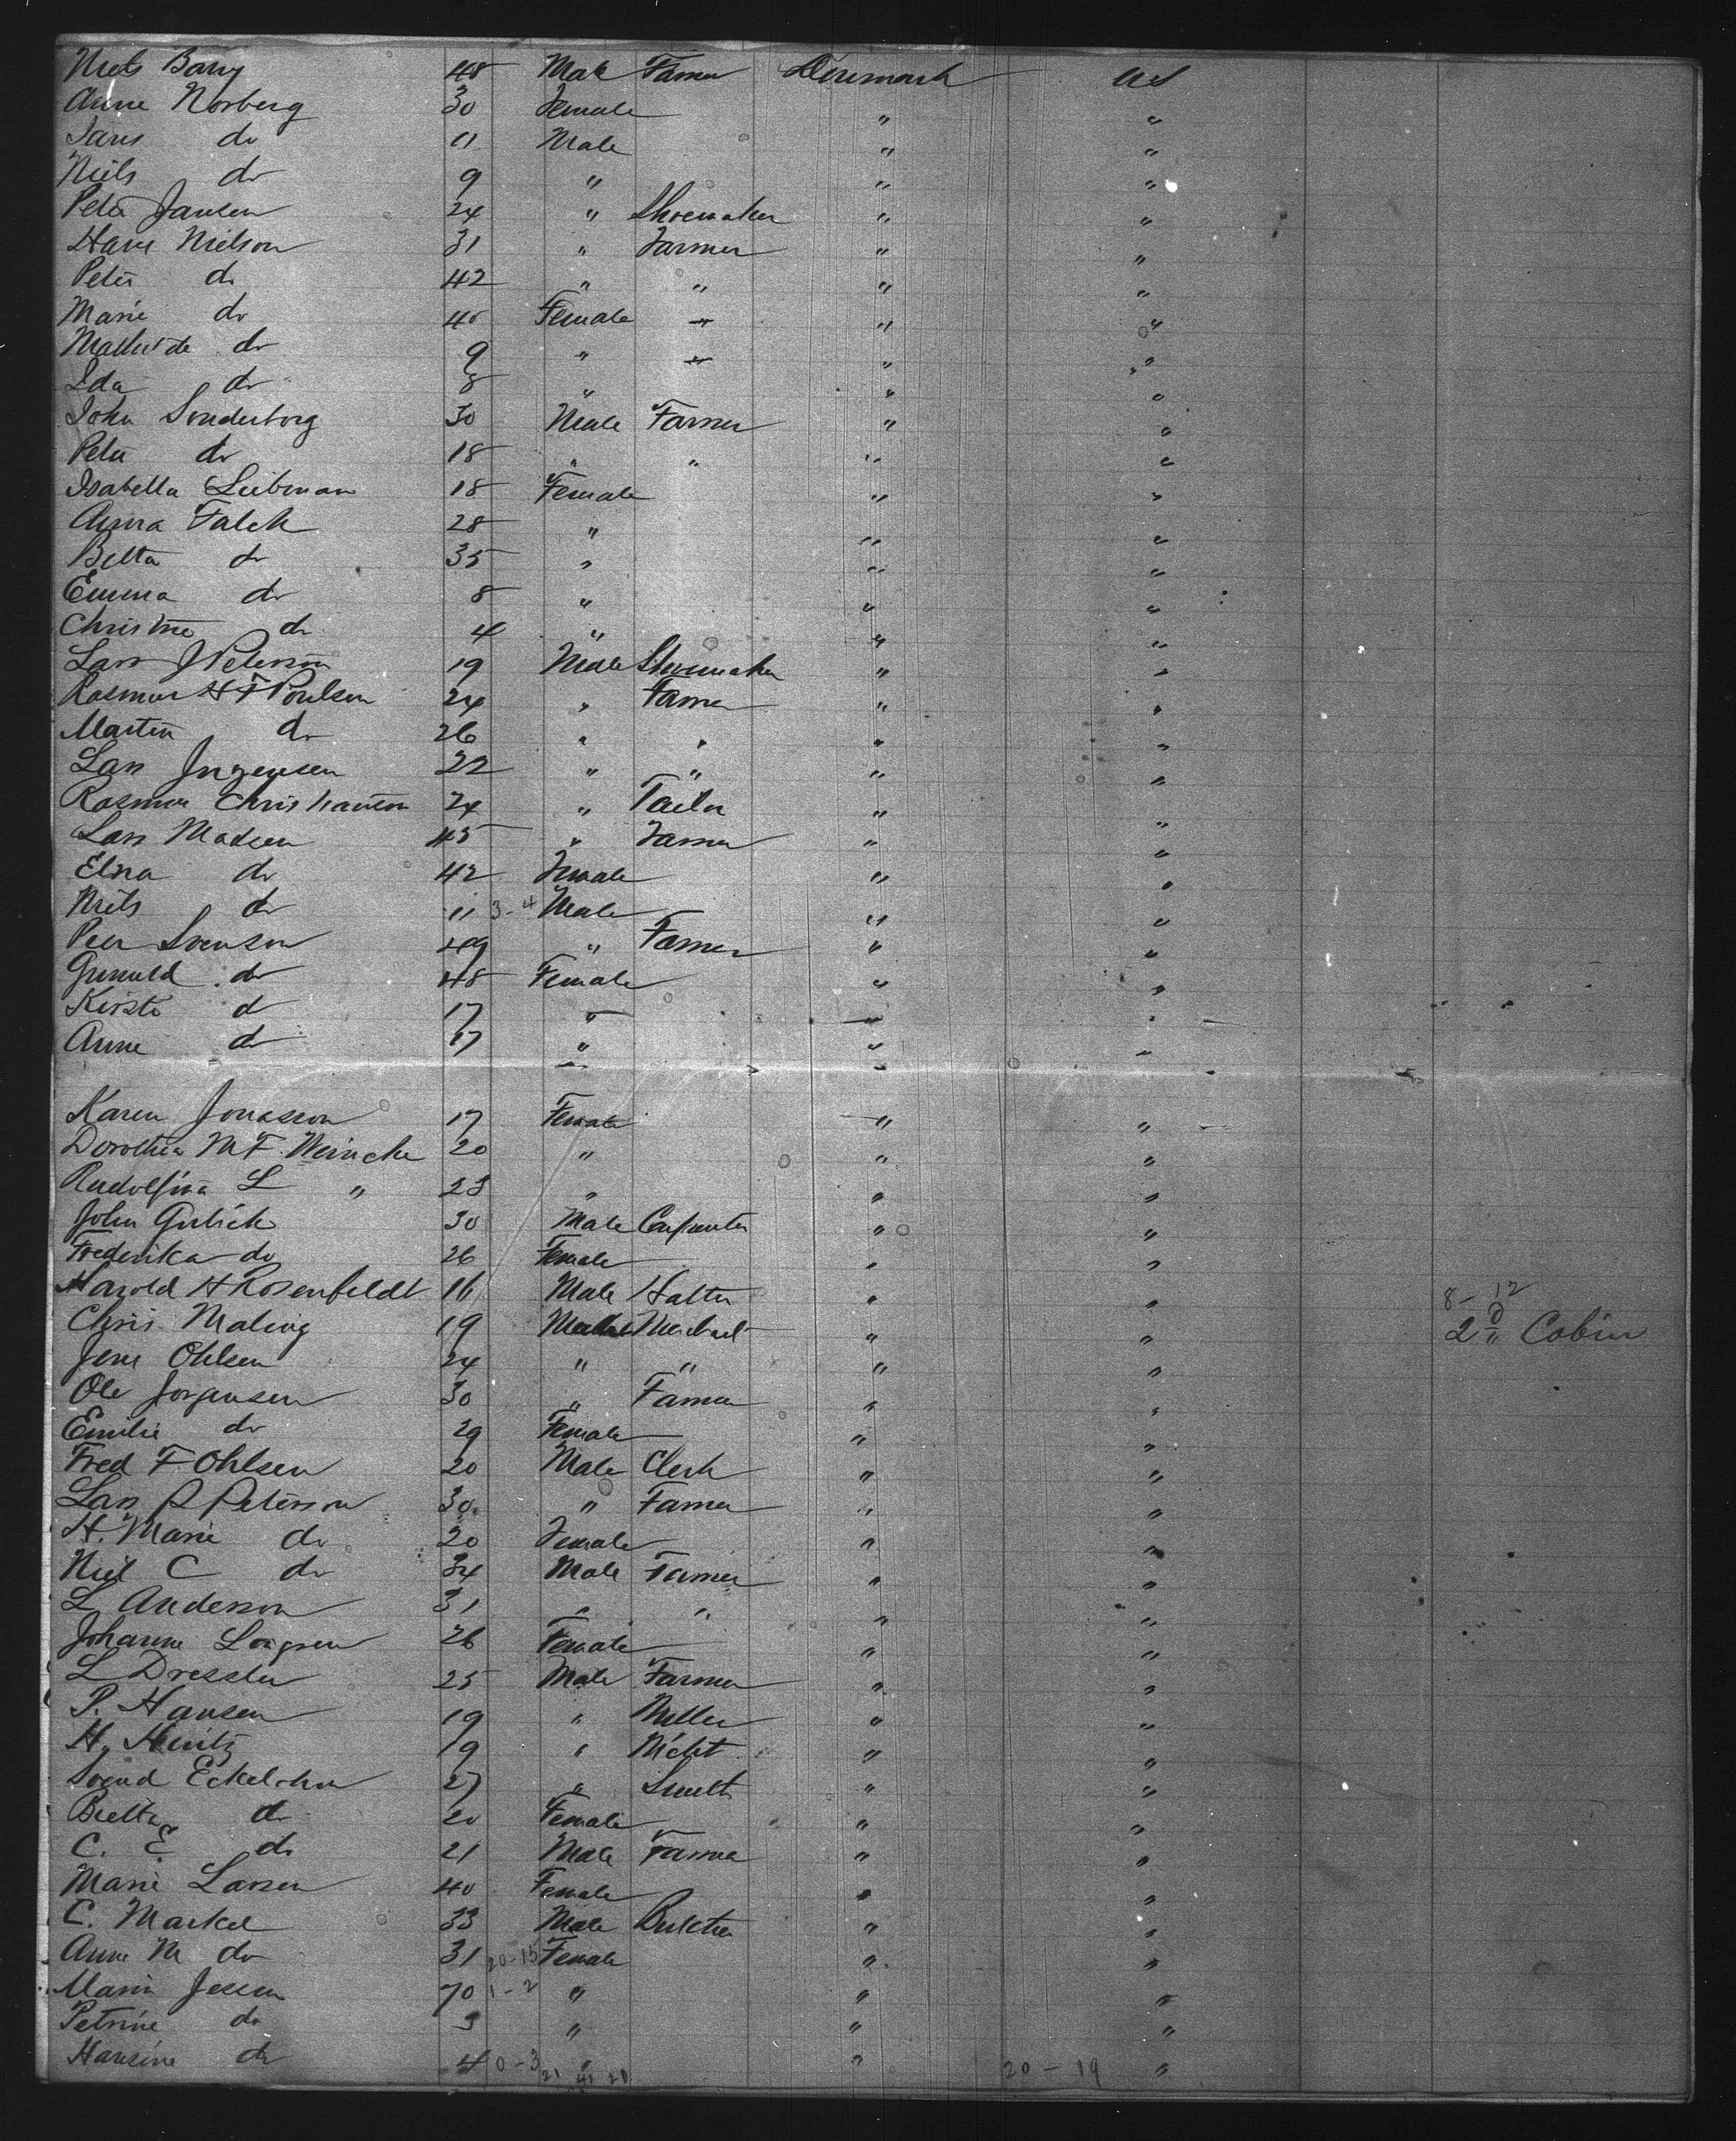 Niels Barry 48 Male Farmer Denmark US
Anne Norberg 30 Female " "
Lars do 11 Male " "
Niels do 9 " " "
Peter Jansen 24 " Shoemaker " "
Hans Nielson 31 " Farmer " "
Peter do 42 " " " "
Marie do 40 Female " " "
Mathilde do 9 " " " "
Ida do 8 " " "
John Sonderborg 30 Male Farmer " "
Peter do 18 " " " "
Isabella Liebman 18 Female " "
Anna Falck 28 " " "
Betta do 35 " " "
Emma do 8 " " "
Christine do 4 " " "
Lars J Peterson 19 Male Shoemaker " "
Rasmus H F Poulsen 24 " Farmer " "
Martin do 26 " " " "
Lars Jorgensen 22 " " " "
Rasmus Christianson 24 " Tailor " "
Lars Madsen 45 " Farmer " "
Elna do 42 Female " "
Niels do 11 3-4 Male " "
Peer Svenson 49 " Farmer " "
do 48 Female " "
Kirste do 17 " " "
Anne do 17 " " "
Karen Jonasson 17 Female " "
Dorothea M F Weincke 20 " " "
Rudolfina L " 23 " " "
John Gulich 30 Male Carpenter " "
Frederika do 26 Female " "
Harold H Rosenfeldt 16 Male Hatter " " 8-12
Chris Maling 19 Male Merchant " " 2d " Cabin
Jens Ohlsen 24 " " " "
Ole Jorgensen 30 " Farmer " "
Emilie do 29 Female " "
Fred F Ohlsen 20 Male Clerk " "
Lars P Peterson 30 " Farmer " "
H. Marie do 20 Female " "
Niel C do 34 Male Farmer " "
L Anderson 31 " " " "
Johanne Logren 26 Female " "
L Dressler 25 Male Farmer " "
P. Hansen 19 " Miller " "
H. Hintz 19 " Mcht " "
Svend 27 " Smith " "
do 20 Female " "
C. E. do 21 Male Farmer " "
Marie Larsen 40 Female " "
C. Markel 33 Male Butcher " "
Anne M do 31 20-15 Female " "
Maria Jessen 70 1-2 " " "
Petrine do 3 " " "
Hansine do 4 0-3 " " "
21 41 20 20-19